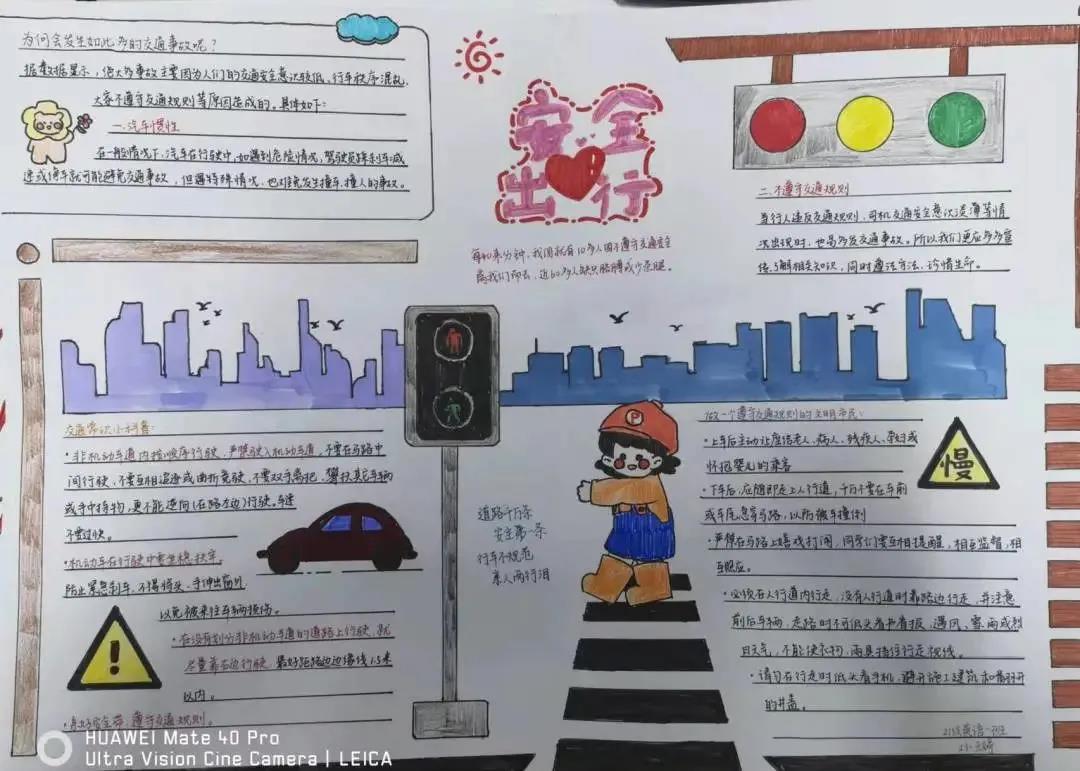 为何会发生如此多的交通事故呢？
据数据显示，绝大多事故主要因为人们的交通安全意识较低、行车秩序混乱、
大家不遵守交通规则等原因造成的。具体如下：
一、汽车惯性
在一般情况下，汽车在行驶中，如遇到危险情况，驾驶员踩刹车减
速或停车就可能避免交通事故，但遇特殊情况，也难免发生撞车、撞人的事故。
安全
出行
我国就有10多人因不遵守交通安全
离我们而去，近60多人缺只胳膊或少条腿。
二、不遵守交通规则
当行人违反交通规则，司机交通安全意识淡薄等情
况出现时，也易多发交通事故。所以我们更应多多宣
传、了解相关知识，同时遵法守法、珍惜生命。
交通常识小科普：
·非机动车道内按顺序行驶，严禁驶入机动车道，不要在马路中
间行驶，不要互相追逐或曲折竞驶，不要双手离把，攀扶其它车辆
或手中持物，更不能逆向(在路左边)行驶。车速
不要过快。
·机动车在行驶中要坐稳扶牢，
防止紧急刹车，不得将头、手伸出窗外
以免被来往车辆损伤。
·在没有划分非机动车道的道路上行驶，就
尽量靠右边行驶，最好距路边边缘线1.5米
以内。
·系好安全带，遵守交通规则。
道路千万条
安全第一条
行车不规范
亲人两行泪
P
做一个遵守交通规则的文明市民：
·上车后主动让座给老人、病人、残疾人、孕妇或
怀抱婴儿的乘客
·下车后，应随即走上人行道，千万不要在车前
或车尾急穿马路，以防被车撞倒
·严禁在马路上嬉戏打闹，同学们要互相提醒，相互监督，相
互照应。
·必须在人行道内行走，没有人行道时靠路边行走，并注意
前后车辆，走路时不可低头看书看报，遇风、雪、雨或烈
日天气，不能使衣物，雨具挡住行走视线。
·请勿在行走时低头看手机，避开施工建筑和
的井盖。
慢
!
21级英语一班
HUAWEI Mate 40 Pro
Ultra Vision Cine Camera | LEICA